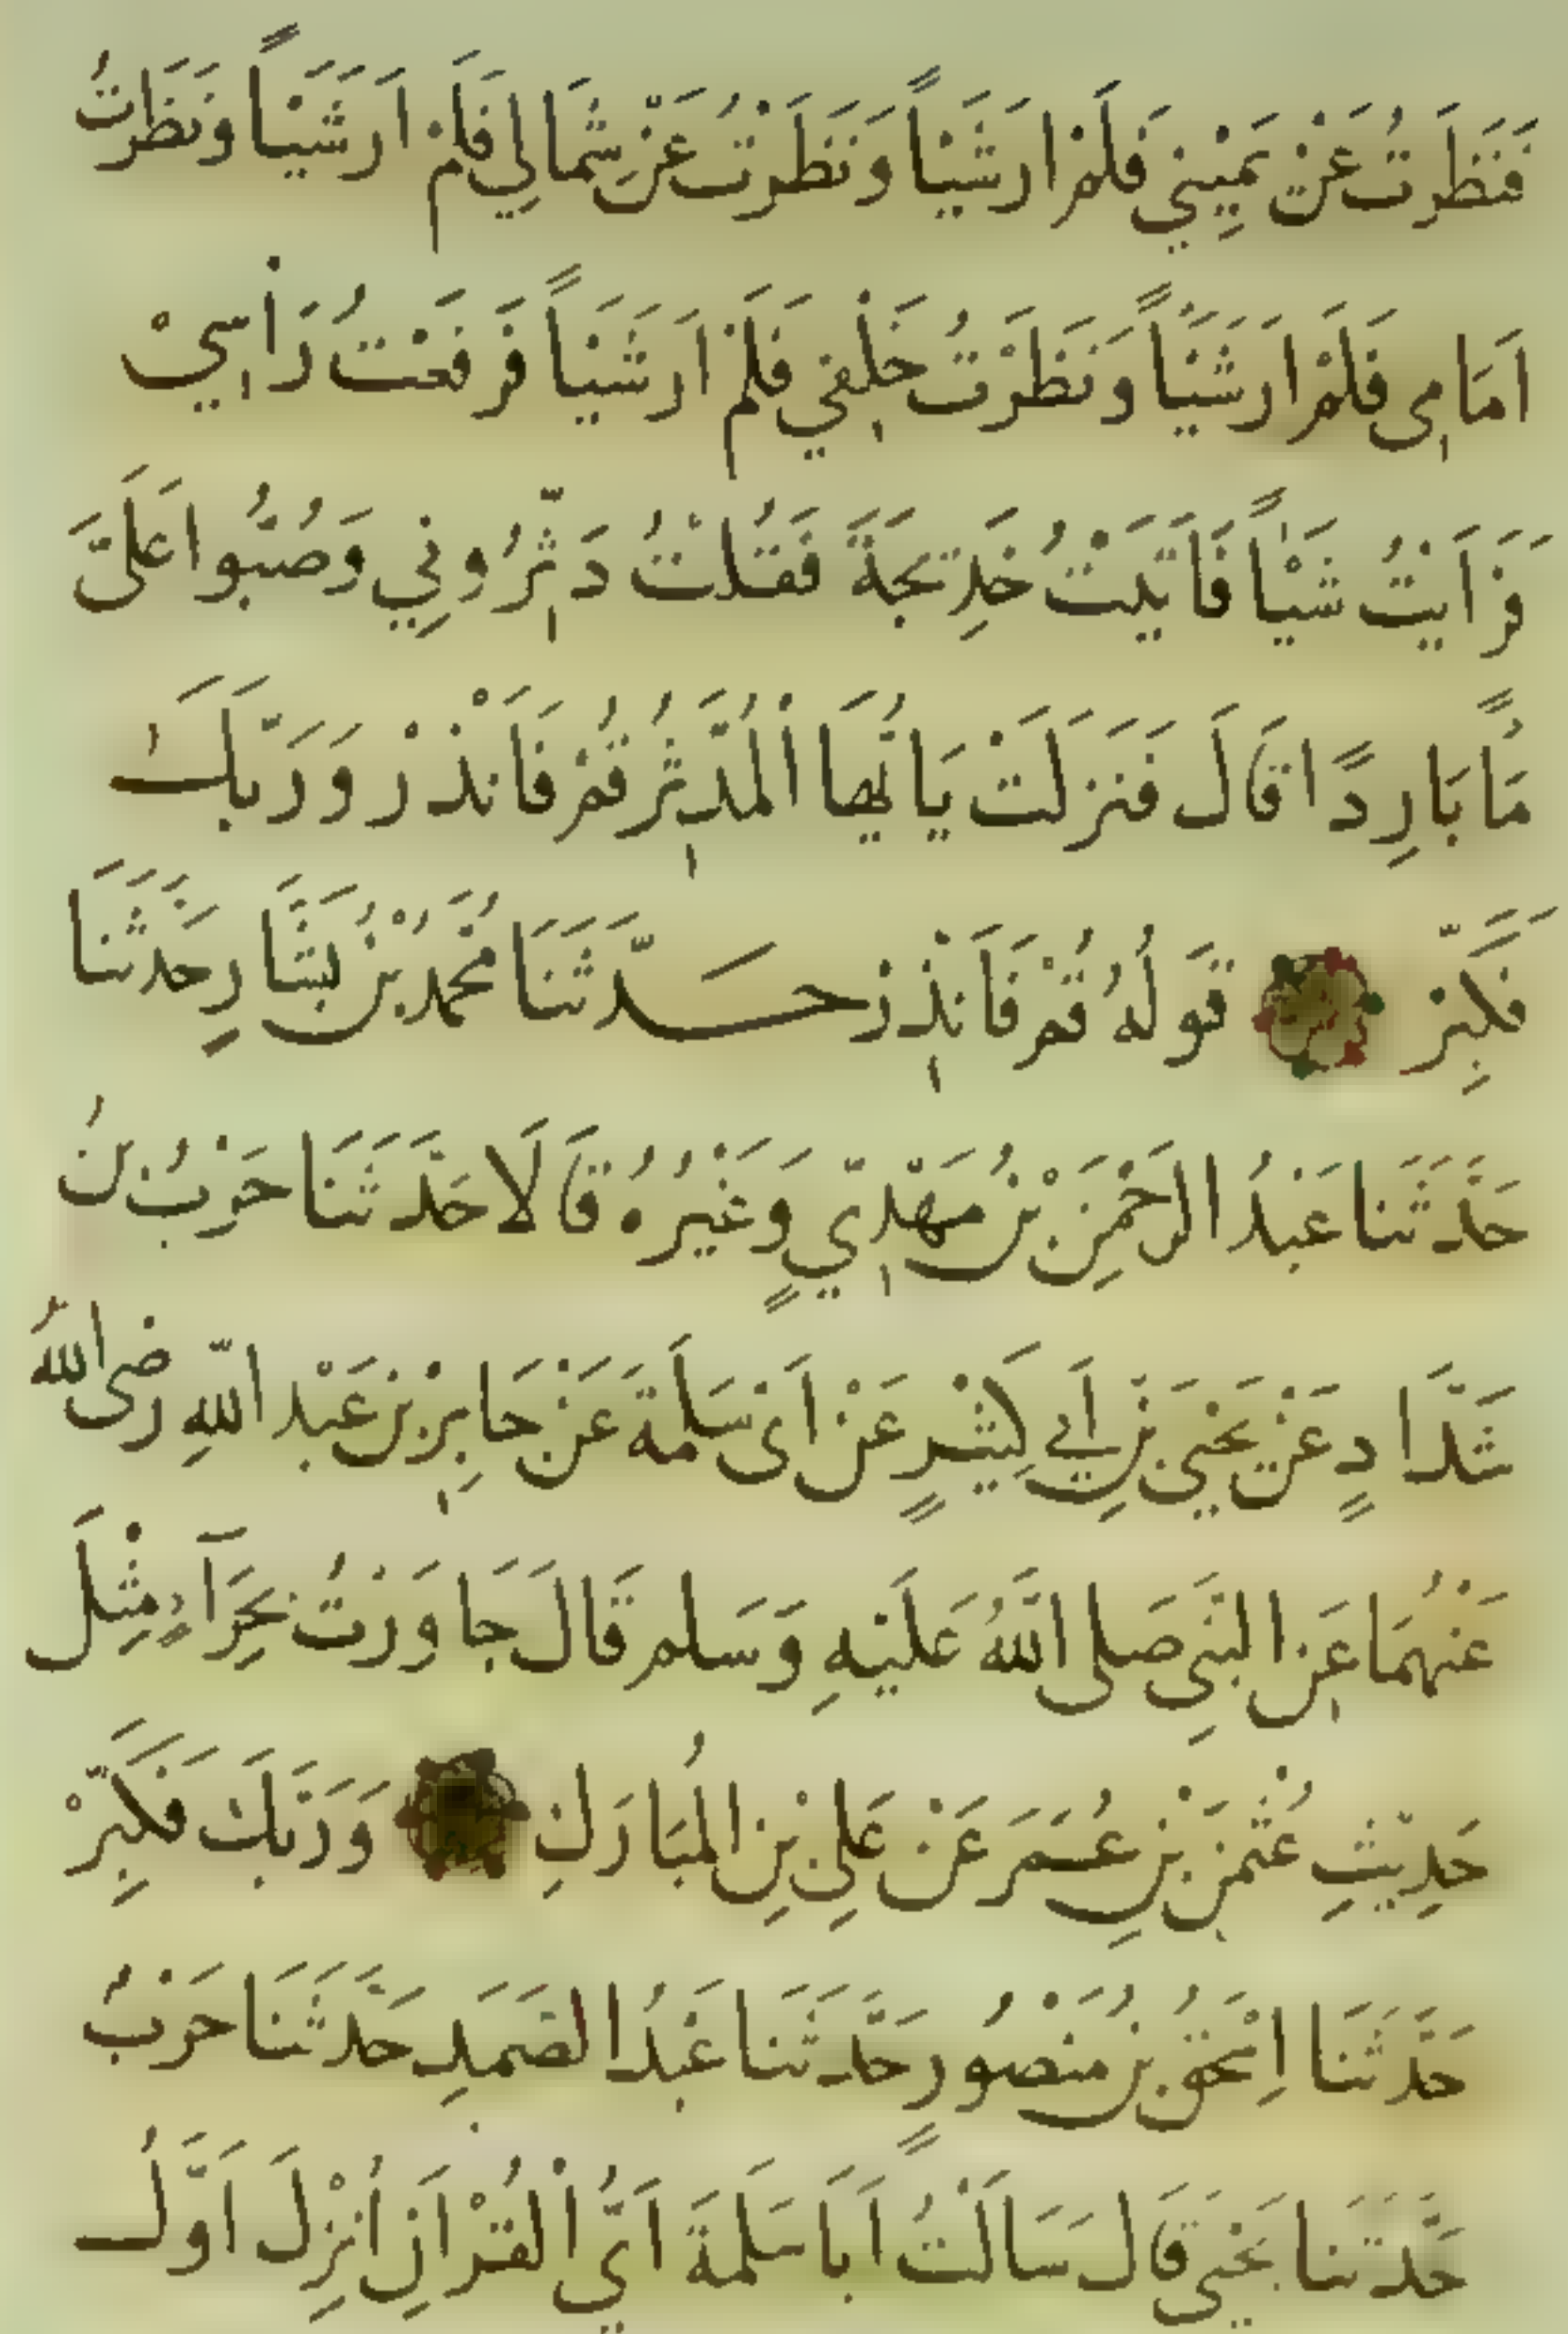 فَنَظَرْتُ عَنْ يَمِيْنِي فَلَمْ ارَ شَيْاً وَنَظَرْتُ عَنْ شِمَالِي فَلَمْ اَرَ شَيْاً وَنَظَرْتُ
اَمَامِي فَلَمْ اَرَ شَيْاً وَنَظَرْتُ خَلْفِي فَلَمْ اَرَ شَيْاً فَرَفَعْتُ رَاْسِيْ
فَرَاَيْتُ شَيْاً فَاَتَيْتُ خَدِيجَةَ فَقُلْتُ دَثِّرُونِي وَصُبُّوا عَلَيَّ
مَاً بَارِدًا قَالَ فَنَزَلَتْ يَا اَيُّهَا الْمُدَّثِّرُ قُمْ فَاَنْذِرْ وَرَبَّكَ
فَكَبِّرْ قَوْلُهُ قُمْ فَاَنْذِرْ حَدَّثَنَا مُحَمَّدُ بْنُ بَشَّارٍ حَدَّثَنَا
حَدَّثَنَا عَبْدُ الرَحْمٰنِ بْنُ مَهْدِيٍّ وَغَيْرُهُ قَالَا حَدَّثَنَا حَرْبُ بْنُ
شَدَّادٍ عَنْ يَحْيَى بْنِ اَبِي كَثِيْرٍ عَنْ اَبِى سَلَمَةَ عَنْ جَابِرِ بْنِ عَبْدِ اللّهِ رضى اللهُ
عَنْهُمَا عَنِ النَّبِيِ صَلى اللَّهُ عَلَيْهِ وَسَلم قَالَ جَاوَرْتُ بِحِرَآءٍ مِثْلَ
حَدِيْثِ عُثْمٰنَ بْنِ عُمَرَ عَنْ عَلِيِ بْنِ الْمُبَارَكِ وَرَبَّكَ فَكَبِّرْ
حَدَّثَنَا اِسْحٰقُ بْنُ مَنْصُورٍ حَدَّثَنَا عَبْدُ الصَمَدِ حَدَّثَنَا حَرْبٌ
حَدَّثَنَا يَحْيَى قَالَ سَاَلْتُ اَبَا سَلَمَةَ اَيُّ الْقُرْاٰنِ اُنْزِلَ اَوَّلُ